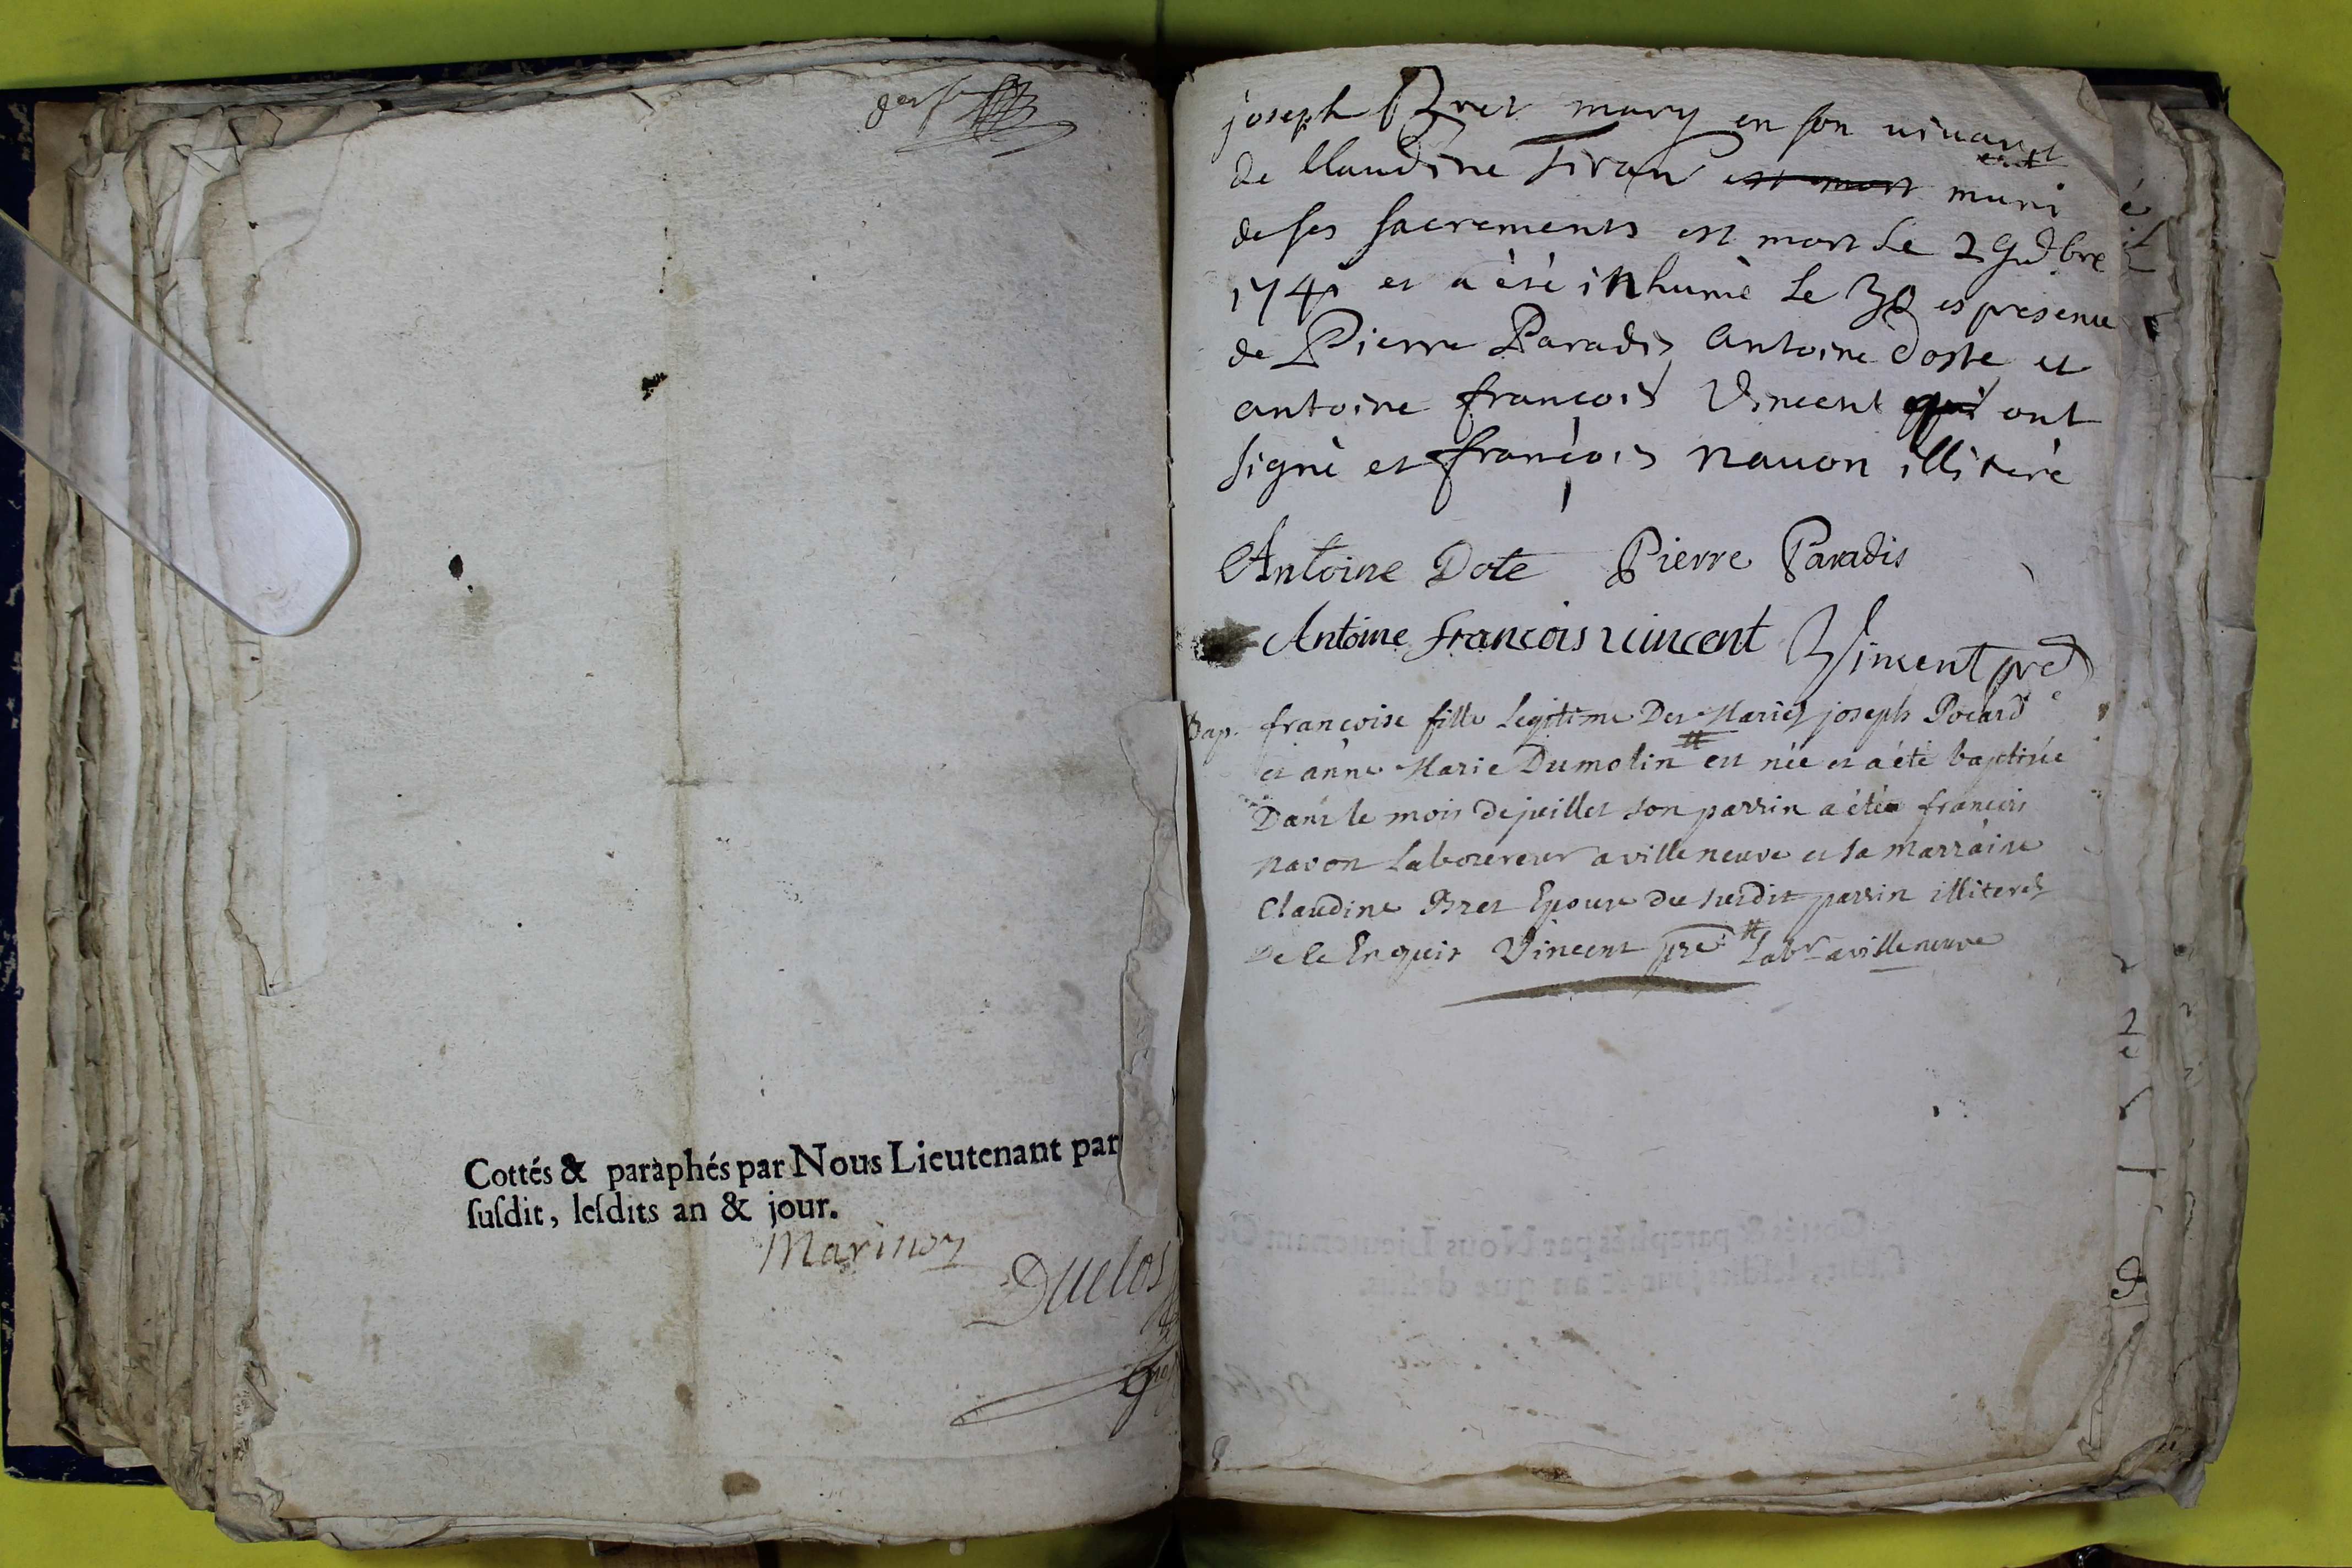 Cottés & paraphés par Nous Lieutenant par
ſuſdit, leſdits an & jour.
Marinon
Duclos
joseph Bret mary en son vivant
de Claudine Tiran est mort muni
de ses sacrements est mort le 29
et a èté inhumè le 30 es presence
de Pierre Paradis antoine doste et
antoine françois Vincent qui ont
signè et françois navon illiterè
Antoine Dote Pierre Paradis
Antoine francois vincent Vincent pre
Bap. françoise fille Legitime Des Mariés joseph Pocard
et anne Marie Dumolin # est née et a été baptisée
Dans le mois de juillet son parrin a été françois
navon Laboureur a villeneuve et sa marraine
Claudine Bret Epouse du susdit parrin illiterés
De ce Enquis Vincent pre # Labr a villeneuve